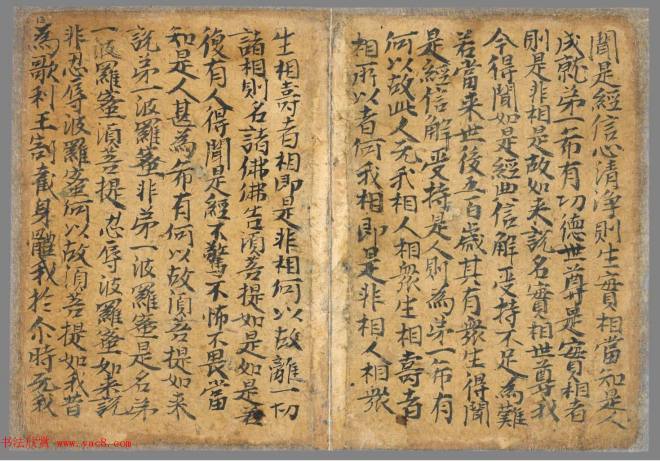 聞是經信心清淨則生實相當知是人
成就弟一希有功德世尊是實相者
則是非相是故如来說名實相世尊我
今得聞如是經典信解受持不足為難
若當来世後五百歲其有衆生得聞
是經信解受持是人則為弟一希有
何以故此人无我相人相衆生相壽者
相所以者何我相即是非相人相衆
生相壽者相即是非相何以故離一切
諸相則名諸佛佛告湏菩提如是如是若
復有人得聞是經不驚不怖不畏當
知是人甚為希有何以故湏菩提如来
說弟一波羅蜜非弟一波羅蜜是名弟
一波羅蜜湏菩提忍辱波羅蜜如来說
非忍辱波羅蜜何以故湏菩提如我昔
為歌利王割截身體我於尒時无我
书法欣赏 www.yac8.com